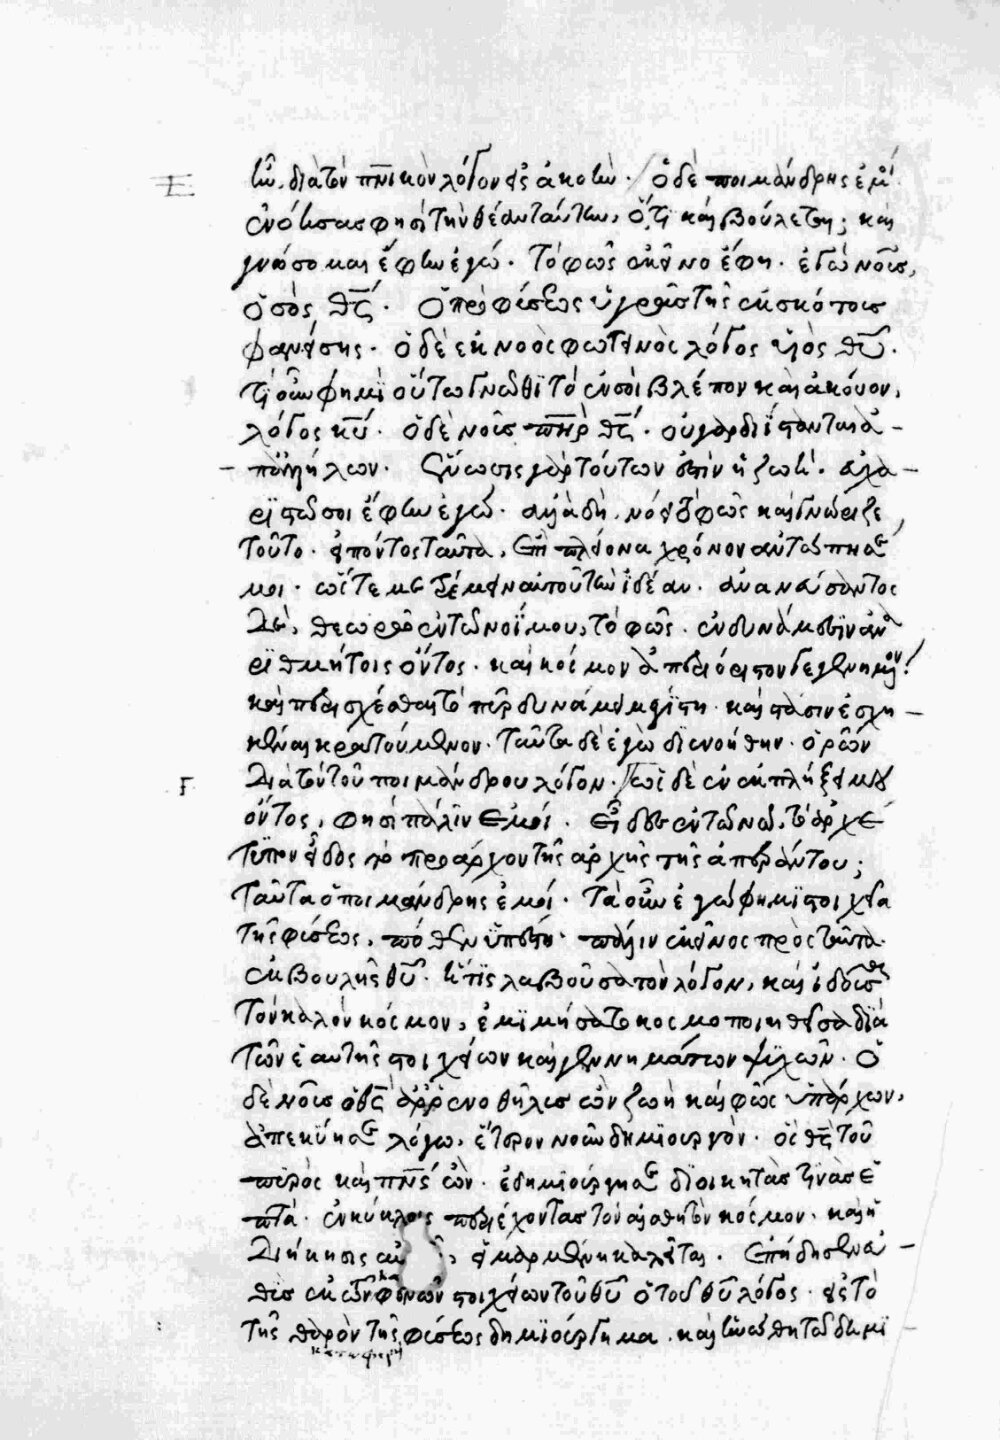 ἦν. διὰ τὸν πνικὸν λόγον εἰς ἀκοήν. Ὁ δὲ ποιμάνδρης ἐμοί
ἐνόησας φησὶ τὴν θέαν ταύτην, ὅτι καὶ βούλεται; καὶ
γνώσομαι ἔφην ἐγώ. Τὸ φῶς ἐκεῖνο ἔφη. ἐγὼ νοῦς,
ὁ σὸς θς. Ὁ πρὸ φύσεως ὑγρᾶς τῆς ἐκ σκότους
φανείσης. ὁ δὲ ἐκ νοὸς φωτεινὸς λόγος υἱὸς θῦ.
τί οὖν φημὶ οὕτω γνῶθι τὸ ἐν σοὶ βλέπον καὶ ἀκούον,
λόγος κυ. ὁ δὲ νοῦς πηρ θς. οὐ γὰρ διίστανται ἀ-
π' ἀλλήλων. ἕνωσις γὰρ τούτων ἐστὶν ἡ ζωή. εὐχα-
ριστῶ σοι ἔφην ἐγώ. ἀλλὰ δὴ νόει τὸ φῶς καὶ γνώριζε
τοῦτο. εἰπόντος ταῦτα, ἐπὶ πλείονα χρόνον ἀντώπησέ
μοι. ὥστε με τρέμειν αὐτοῦ τὴν ἰδέαν. ἀνανεύσαντος
δὲ, θεωρῶ ἐν τῷ νοΐ μου, τὸ φῶς. ἐν δυνάμεσιν ἀνα
ριθμήτοις ὄντος. καὶ κόσμον ἀπεριόριστον γεγενημένον.
καὶ περισχέσθαι τὸ πῦρ δυνάμει μεγίστῃ. καὶ στάσιν ἐσχη-
κέναι κρατούμενον. ταῦτα δὲ ἐγὼ διενοήθην. ὁρῶν
διὰ τὸν τοῦ ποιμάνδρου λόγον. ὡς δὲ ἐν ἐκπλήξει μου
ὄντος, φησὶ πάλιν ἐμοί. εἶδες ἐν τῷ νῷ, τὸ ἀρχέ
τυπον εἶδος τὸ προάρχον τῆς ἀρχῆς τῆς ἀπεράντου;
ταῦτα ὁ ποιμάνδρης ἐμοί. τὰ οὖν ἐγώ φημι στοιχεῖα
τῆς φύσεως, πόθεν ὑπέστη. πάλιν ἐκεῖνος πρὸς ταῦτα.
ἐκ βουλῆς θῦ. ἥτις λαβοῦσα τὸν λόγον, καὶ ἰδοῦσα
τὸν καλὸν κόσμον, ἐμιμήσατο κοσμοποιηθεῖσα διὰ
τῶν ἑαυτῆς στοιχείων καὶ γεννημάτων ψυχῶν. Ὁ
δὲ νοῦς ὁ θς ἀρρενόθηλυς ὢν ζωὴ καὶ φῶς ὑπάρχων,
ἀπεκύησε λόγω, ἕτερον νοῦν δημιουργὸν. ὃς θς τοῦ
πυρὸς καὶ πνς ὢν. ἐδημιούργησε διοικητάς τινας ἑ
πτὰ. ἐν κύκλοις περιέχοντας τὸν αἰσθητὸν κόσμον. καὶ ἡ
διήκησις αὐτῶν, εἱμαρμένη καλεῖται. ἐπήδησεν εὐ-
θὺς ἐκ τῶν κατωφερῶν στοιχείων τοῦ θῦ ὁ τοῦ θῦ λόγος. εἰς τὸ
τῆς